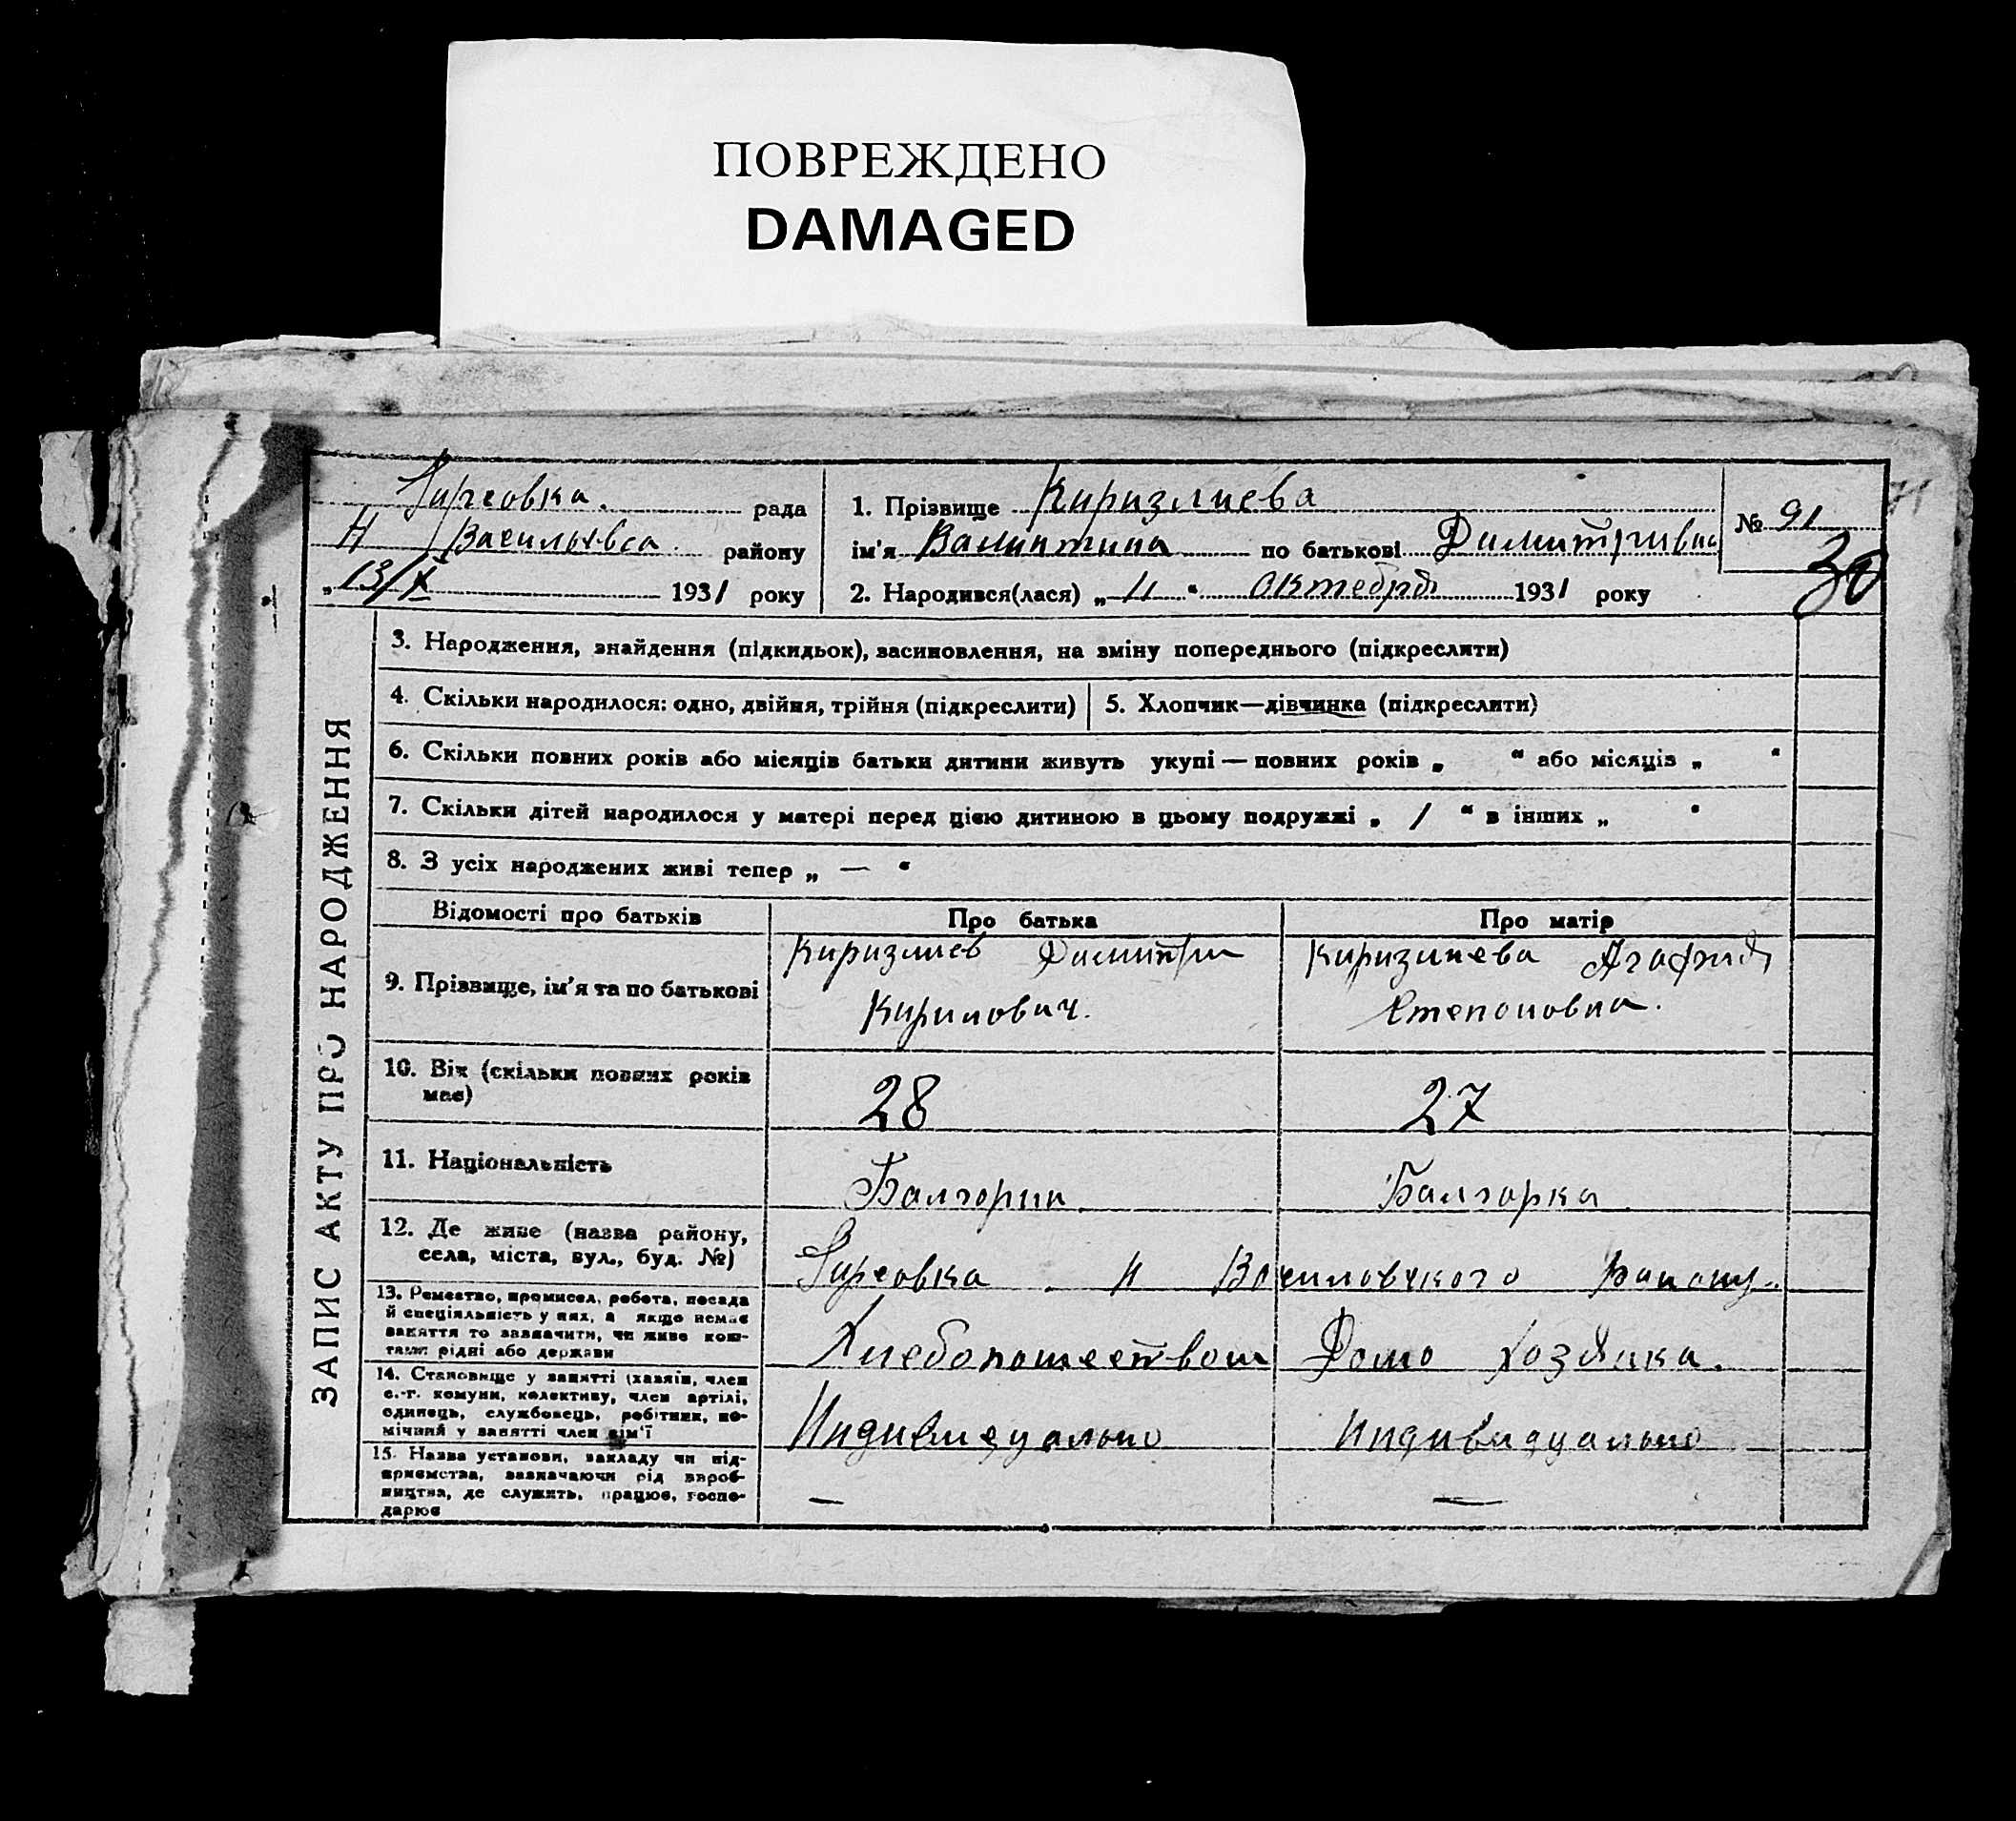 ПОВРЕЖДЕНО
DAMAGED
Гирсовка. рада
Н Васильевса району
„13/X 1931 року
1. Прізвище Киризлиева
ім'я Валинтина по батькові Димитривна
2. Народився(лася) „11“ Октебря 1931 року
№ 91
30
ЗАПИС АКТУ ПРО НАРОДЖЕННЯ
3. Народження, знайдення (підкидьок), засиновлення, на зміну попереднього (підкреслити)
4. Скільки народилося: одно, двійня, трійня (підкреслити) 5. Хлопчик—дівчинка (підкреслити)
6. Скільки повних років або місяців батьки дитини живуть укупі — повних років „ “ або місяців „ “
7. Скільки дітей народилося у матері перед цією дитиною в цьому подружжі „ / “ в інших „ “
8. З усіх народжених живі тепер „ — “
Відомості про батьків Про батька Про матір
9. Прізвище, ім'я та по батькові
Киризлиев Димитри
Кирилович.
Киризлиева Агафия
Степоновна.
10. Вік (скільки повних років
має)
28 27
11. Національність Балгорин Балгорка
12. Де живе (назва району,
села, міста, вул., буд. №)
Гирсовка н Василовского Району.
13. Ремество, промисел, робота, посада
й спеціяльність у них, а якщо немає
заняття то зазначити, чи живе кош-
тами рідні або держави
Хлебопошеством Домо хозяика.
14. Становище у занятті (хазяїн, член
с.-г. комуни, колективу, член артілі,
одинець, службовець, робітник, по-
мічний у занятті член сім'ї
Индивидуально Индивидуально
15. Назва установи, закладу чи під-
приємства, зазначаючи рід вироб-
ництва, де служить, працює, госпо-
дарює
— —